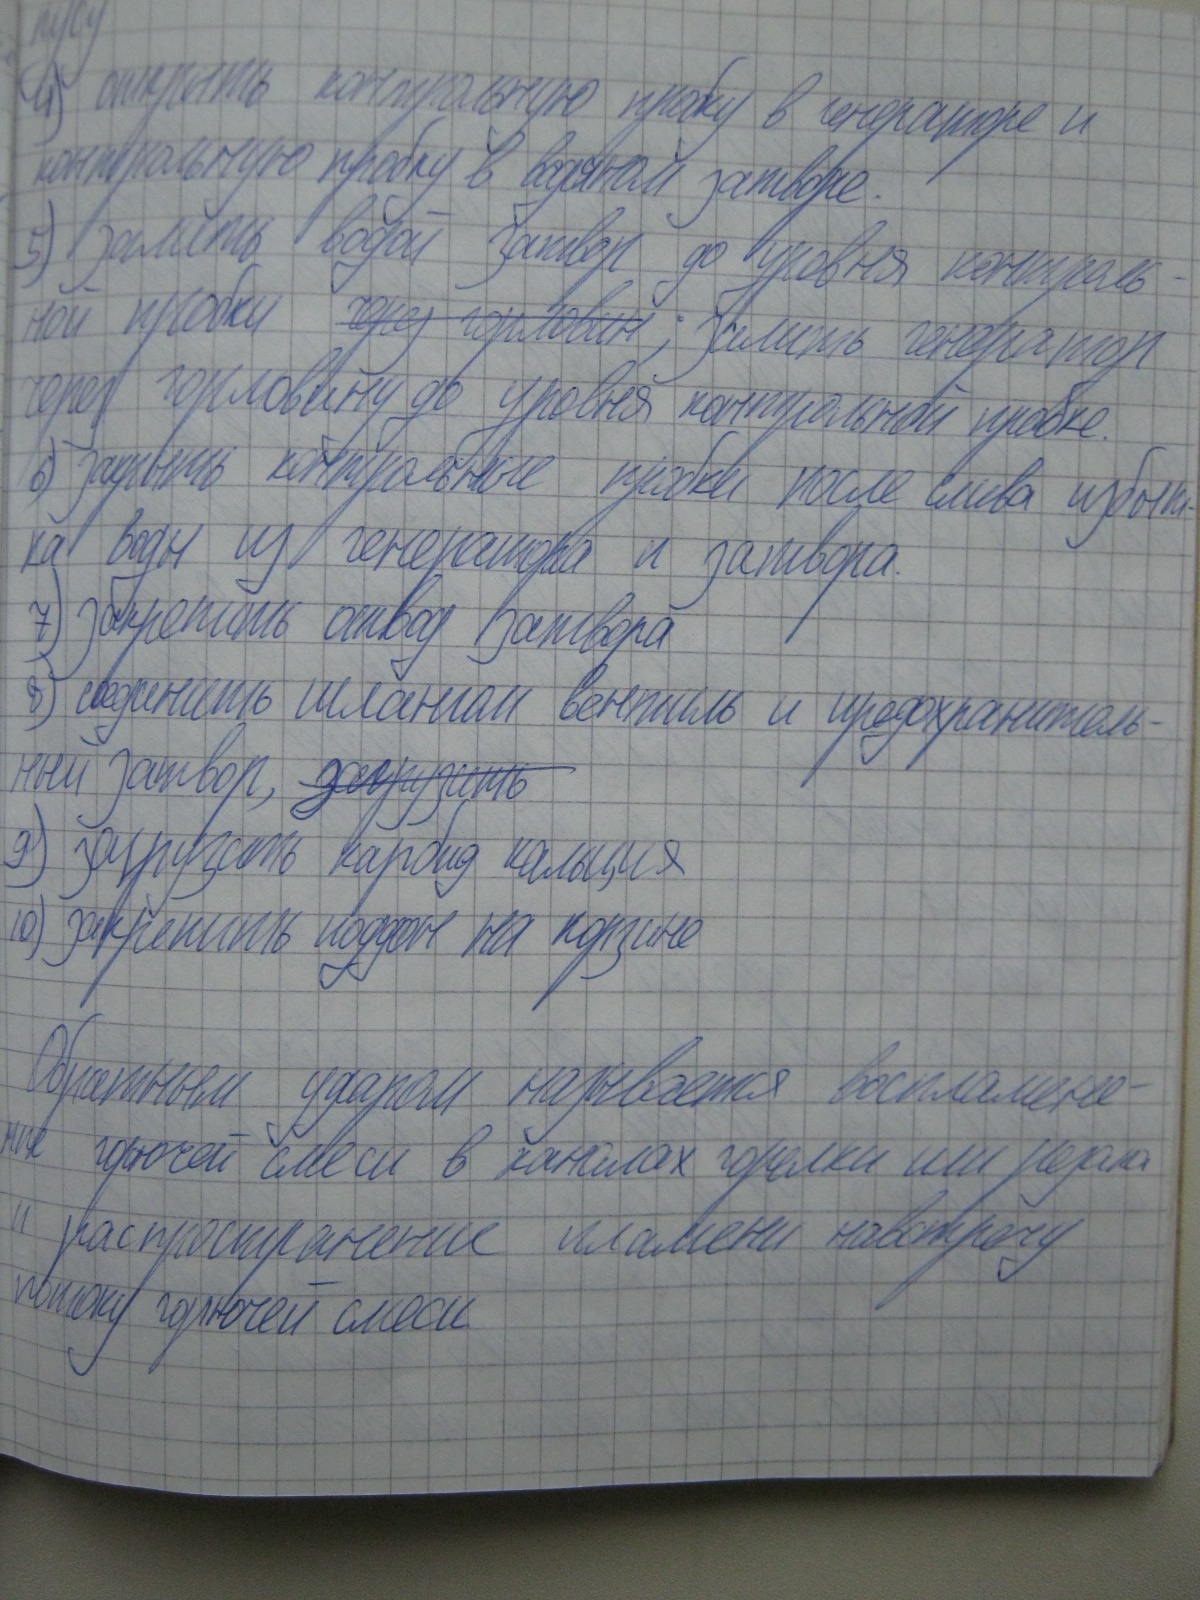 пусу
4) открыть контрольную пробку в генераторе и
контрольную пробку в водяном затворе.
5) залить водой затвор до уровня контроль-
ной пробки через горловин; залить генератор
через горловину до уровня контрольной пробке.
6) закрыть контрольные пробки после слива избыт-
ка воды из генератора и затвора.
7) закрепить отвод затвора
8) соединить шлангом вентиль и предохранитель-
ный затвор, загрузить
9) загрузить карбид кальция
10) закрепить поддон на корзине
Обратным ударом называется воспламене-
ние горючей смеси в каналах горелки или резака
и распространение пламени навстречу
потоку горючей смеси